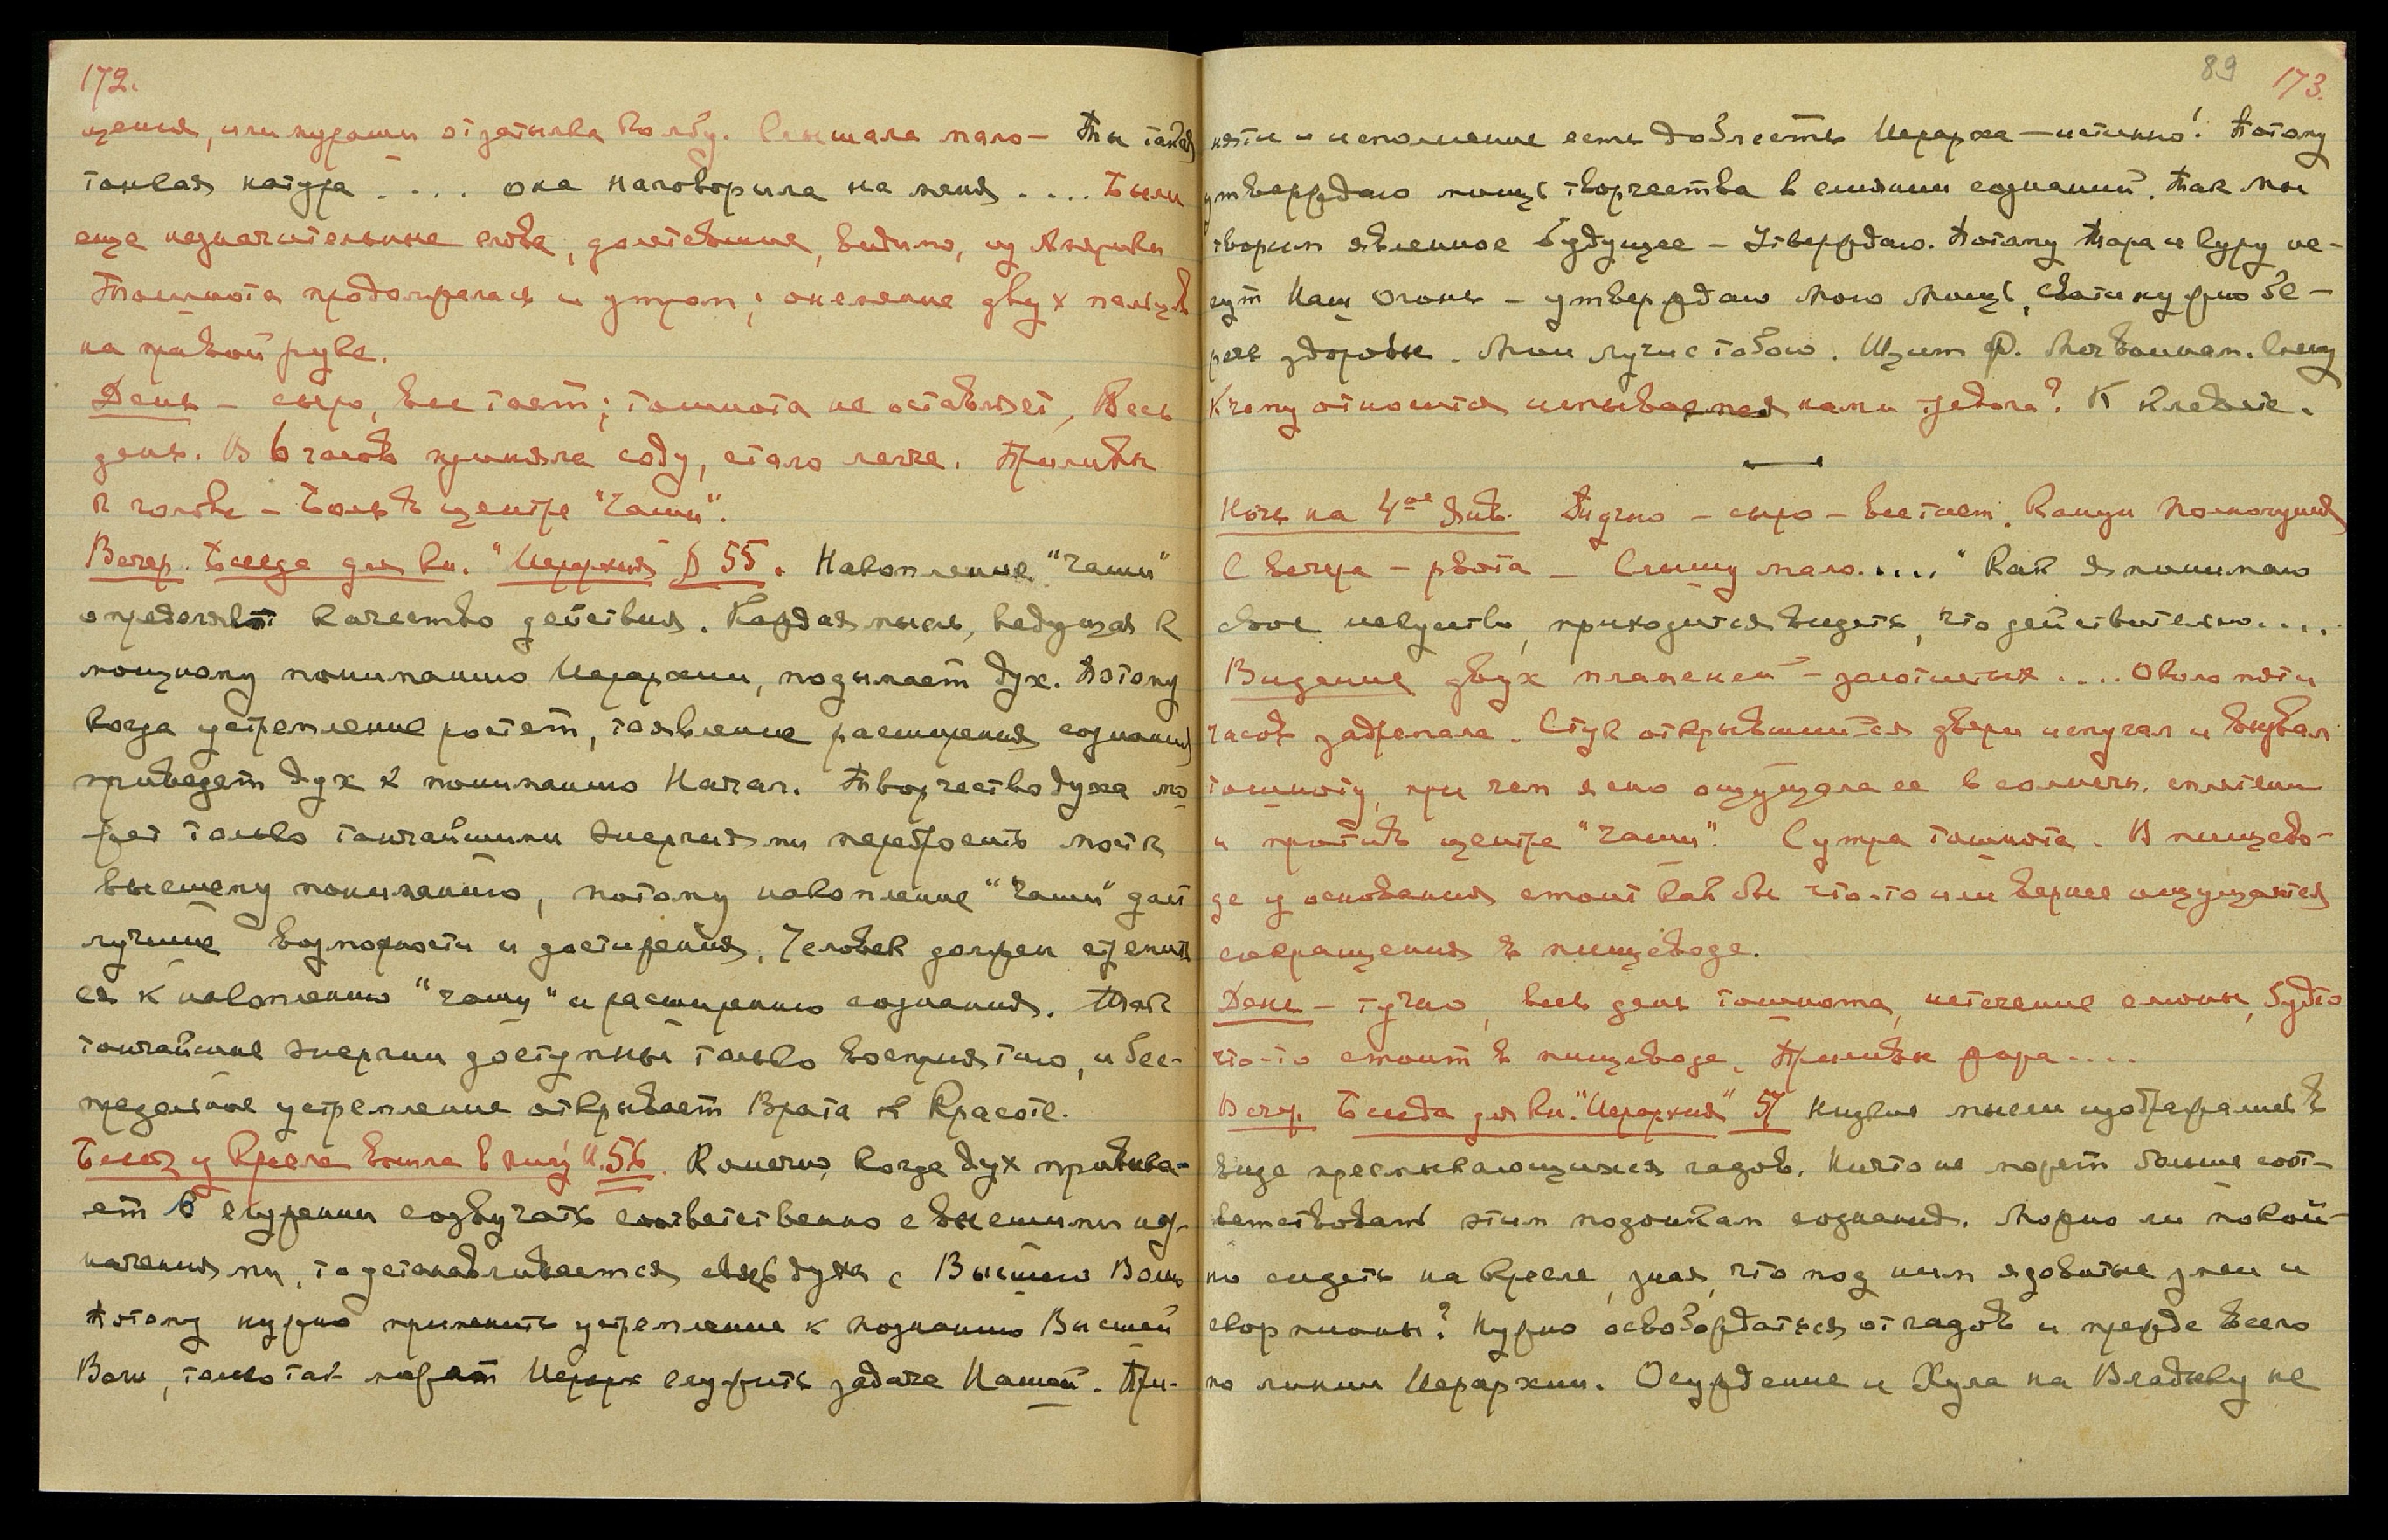 172.
щения, или мурашки от затылка ко лбу. Слышала мало – Ты такая
тонкая натура .... она наговорила на меня .... Были
еще незначительные слова, долетевшие, видимо, из Америки
Тошнота продолжалась и утром; онемение двух пальцев
на правой руке.
День – сыро, все тает; тошнота не оставляет, весь
день. В 6 часов приняла соду, стало легче. Приливы
к голове – боль в центре "Чаши".
Вечер. Беседа для кн. "Иерархия § 55. Накопление "Чаши"
определяет качество действия. Каждая мысль, ведущая к
мощному пониманию Иерархии, подымает дух. Потому
когда устремление растет, то явление расширения сознания
приведет дух к пониманию Начал. Творчество духа мо
жет только тончайшими энергиями перебросить мост к
высшему пониманию, потому накопление "Чаши" дает
лучшие возможности и достижения. Человек должен стремить
ся к накоплению "чаши" и расширению сознания. Так
тончайшие энергии доступны только восприятию, и бес-
предельное устремление открывает Врата к Красоте.
Беседа у Кресла вошла в книгу И. 56. Конечно, когда дух привыка-
ет в служении созвучать соответственно с высшими наз-
начениями, то устанавливается связь духа с Высшею Волею
Потому нужно применить устремление к познанию Высшей
Воли, только так может Иерарх служить задаче Нашей. При-
89 173.
нятие и исполнение есть доблесть Иерарха – истинно! Потому
утверждаю мощь творчества в слиянии сознаний. Так мы
творим явленное будущее – Утверждаю. Потому Тара и Гуру не-
сут Наш Огонь – утверждаю Мою Мощь, Свати нужно бе-
речь здоровье. Мои лучи с тобою. Щит Ф. Меч Воинам. Спешу
К чему относится испытываемая нами тревога? К Кледвоте.
Ночь на 4ое Янв. Душно – сыро – все тает. Канун Полнолуния
С вечера – рвота – Слышу мало.... "Как я понимаю
свое искусство, приходится видеть, что действительно....
Видение двух пламеней – золотистых .... Около пяти
часов задремала. Стук открывшейся двери испугал и вызвал
тошноту, при чем ясно ощущала ее в солнечн. сплетении
и против центра "Чаши". С утра тошнота. В пищево-
де у основания стоит как бы что-то или вернее ощущаются
сокращения в пищеводе.
День – тучно, весь день тошнота, истечение слюны, будто
что-то стоит в пищеводе. Приливы жара....
Вечер. Беседа для кн. "Иерархия" 57 Низкие мысли изображались в
виде пресмыкающихся гадов. Ничто не может больше соот-
ветствовать этим подонкам сознания. Можно ли покой-
но сидеть на кресле, зная, что под ним ядовитые змеи и
скорпионы? Нужно освобождаться от гадов и прежде всего
по линии Иерархии. Осуждение и Хула на Владыку не